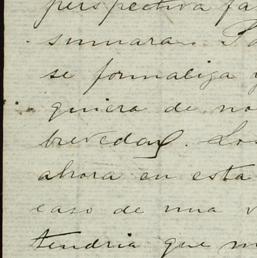 perspectiva fa
sumara. Pa
se formaliza y
quiera de no
brevedad. Los
ahora en esta
caso de una v
tendria que m